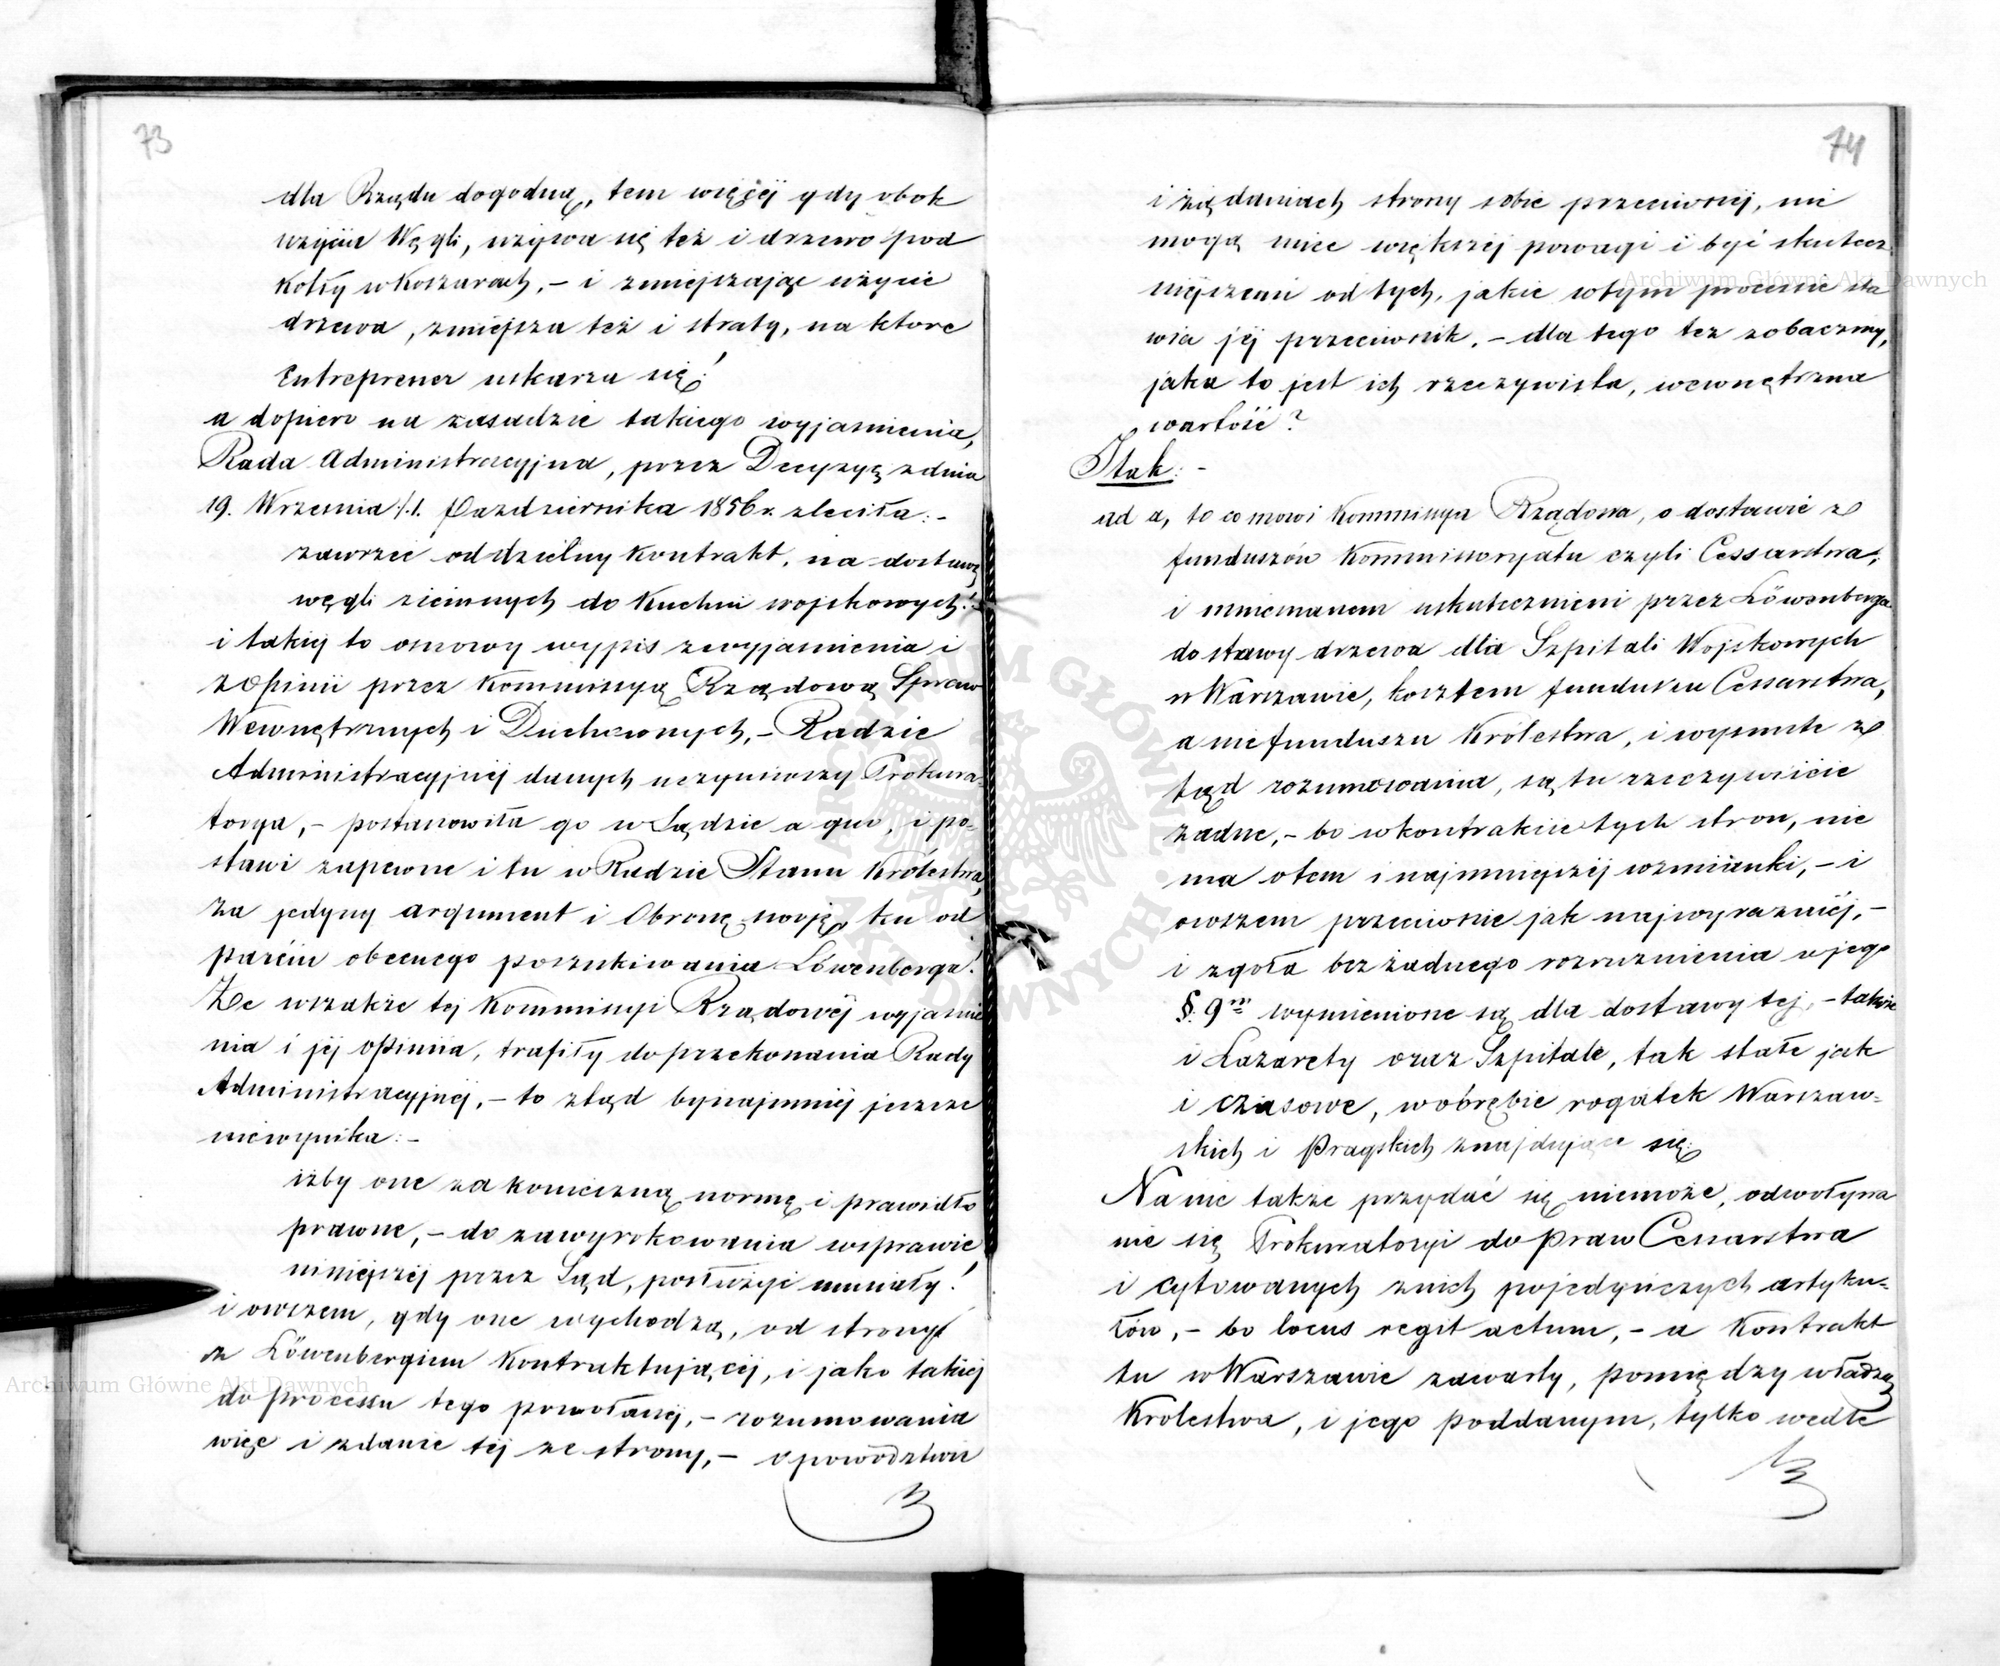 73
dla Rządu dogodną, tem więcéj gdy obok
użycia Węgli, używa się też i drzewo pod
kotły w Koszarach, – i zmiejszając użycie
drzewa, zmiejsza też i straty, na które
Entreprener uskarza się!
a dopiero na zasadzie takiego wyjasnienia,
Rada Administracyjna, przez Decyzyę z dnia
19. Wrzesnia /1. Pazdziernika 1856 r. zleciła: –
zawrzeć oddzielny Kontrakt, na dostawę
węgli ziemnych do Kuchni wojskowych!
i takiej to osnowy wypis z wyjasnienia i
z Opinii przez Kommissyą Rządową Spraw
Wewnętrznych i Duchownych, – Radzie
Administracyjnéj danych uczyniwszy Prokura-
torya, – postanowiła go w Sądzie a quo, i po-
stawi zapewne i tu w Radzie Stanu Królestwa,
za jedyny argument i Obronę swoję, ku od
parciu obecnego poszukiwania Löwenberga!
Że wszakże téj Kommissyi Rządowéj wyjasnie
nia i jéj opinia, trafiły do przekonania Rady
Administracyjnéj, – to ztąd bynajmniéj jeszcze
niewynika: –
iżby one za konieczną normę i prawidło
prawne, – do zawyrokowania w sprawie
niniejszéj przez Sąd, posłużyć musiały!
i owszem, gdy one wychodzą, od strony
z Löwenbergiem Kontraktującéj, i jako takiéj
do processu tego powołanéj, – rozumowania
więc i zdanie téj ze strony, – o powództwie
74
i żądaniach strony sobie przeciwnéj, nie
mogą miec większéj powagi i być skutecz
niejszemi od tych, jakie w tym processie sta
wia jéj przeciwnik. – dla tego też zobaczmy,
jaka to jest ich rzeczywista, wewnętrzna
wartość?
I tak: –
ad a, to co mowi Kommissya Rządowa, o dostawie z
funduszów Kommissoryatu czyli Cessarstwa;
i mniemanem uskutecznieni przez Löwenberga
dostawy drzewa dla Szpitali Wojskowych
w Warszawie, kosztem funduszu Cessarstwa,
a nie funduszu Królestwa, i wysnute z
tąd rozumowania, są tu rzeczywiście
żadne, – bo w kontrakcie tych stron, nie
ma o tem i najmniejszéj wzmianki, – i
owszem przeciwnie jak najwyrazniéj, –
i zgoła bez żadnego rozroznienia w jego
§. 9ym wymienione są dla dostawy téj, – także
i Lazarety oraz Szpitale, tak stałe jak
i czasowe, w obrębie rogatek Warszaw-
skich i Pragskich znajdujące się:
Na nic także przydać się niemoże, odwoływa
nie się Prokuratoryi do praw Cessarstwa
i cytowanych z nich pojedyńczych artyku-
łów, – bo locus regit actum, – a Kontrakt
tu w Warszawie zawarty, pomiędzy władzą
Królestwa, i jego poddanym, tylko wedle
Archiwum Główne Akt Dawnych
Archiwum Główne Akt Dawnych
ARCHIWUM GŁÓWNE AKT DAWNYCH